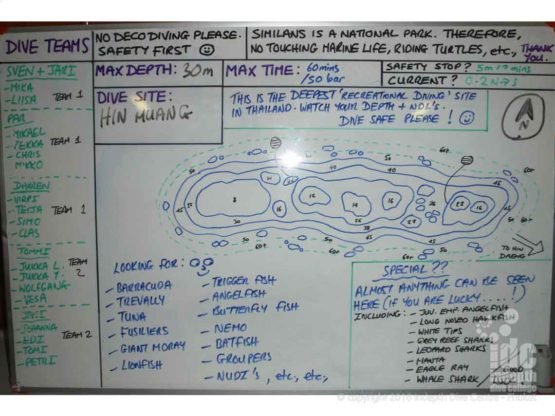 DIVE TEAMS
NO DECO DIVING PLEASE.
SAFETY FIRST
SIMILANS IS A NATIONAL PARK. THEREFORE,
NO TOUCHING MARINE LIFE, RIDING TURTLES, etc., THANK YOU.
MAX DEPTH: 30m
MAX TIME: 60mins
/50 bar
SAFETY STOP?
CURRENT?
DIVE SITE:
HIN MUANG
THIS IS THE DEEPEST 'RECREATIONAL DIVING' SITE
IN THAILAND. WATCH YOUR DEPTH + NDL's.
DIVE SAFE PLEASE!
N
SVEN + JARI
- MIKA
- LIISA
TEAM 1
PAR
- MIKAEL
- PEKKA
- CHRIS
- MIKKO
TEAM 1
DARREN
- VIRPI
- TEIJA
- SIMO
- CLAS
TEAM 1
TOMMI
- JUKKA L.
- JUKKA T.
- WOLFGANG
- VESA
TEAM 2
- TOMI
- PETRI
TEAM 2
TO HIN
DAENG
LOOKING FOR:
- BARRACUDA
- TREVALLY
- TUNA
- FUSILIERS
- GIANT MORAY
- LIONFISH
- TRIGGER FISH
- ANGELFISH
- BUTTERFLY FISH
- NEMO
- BATFISH
- GROUPERS
- NUDI'S, etc, etc,
SPECIAL??
ALMOST ANYTHING CAN BE SEEN
HERE (IF YOU ARE LUCKY.....!)
INCLUDING:
- JUV. EMP. ANGELFISH
- LONG NOSED HAWKFISH
- WHITE TIPS
- GREY REEF SHARKS
- LEOPARD SHARKS
- MANTA
- EAGLE RAY
- WHALE SHARK
idc
dive college